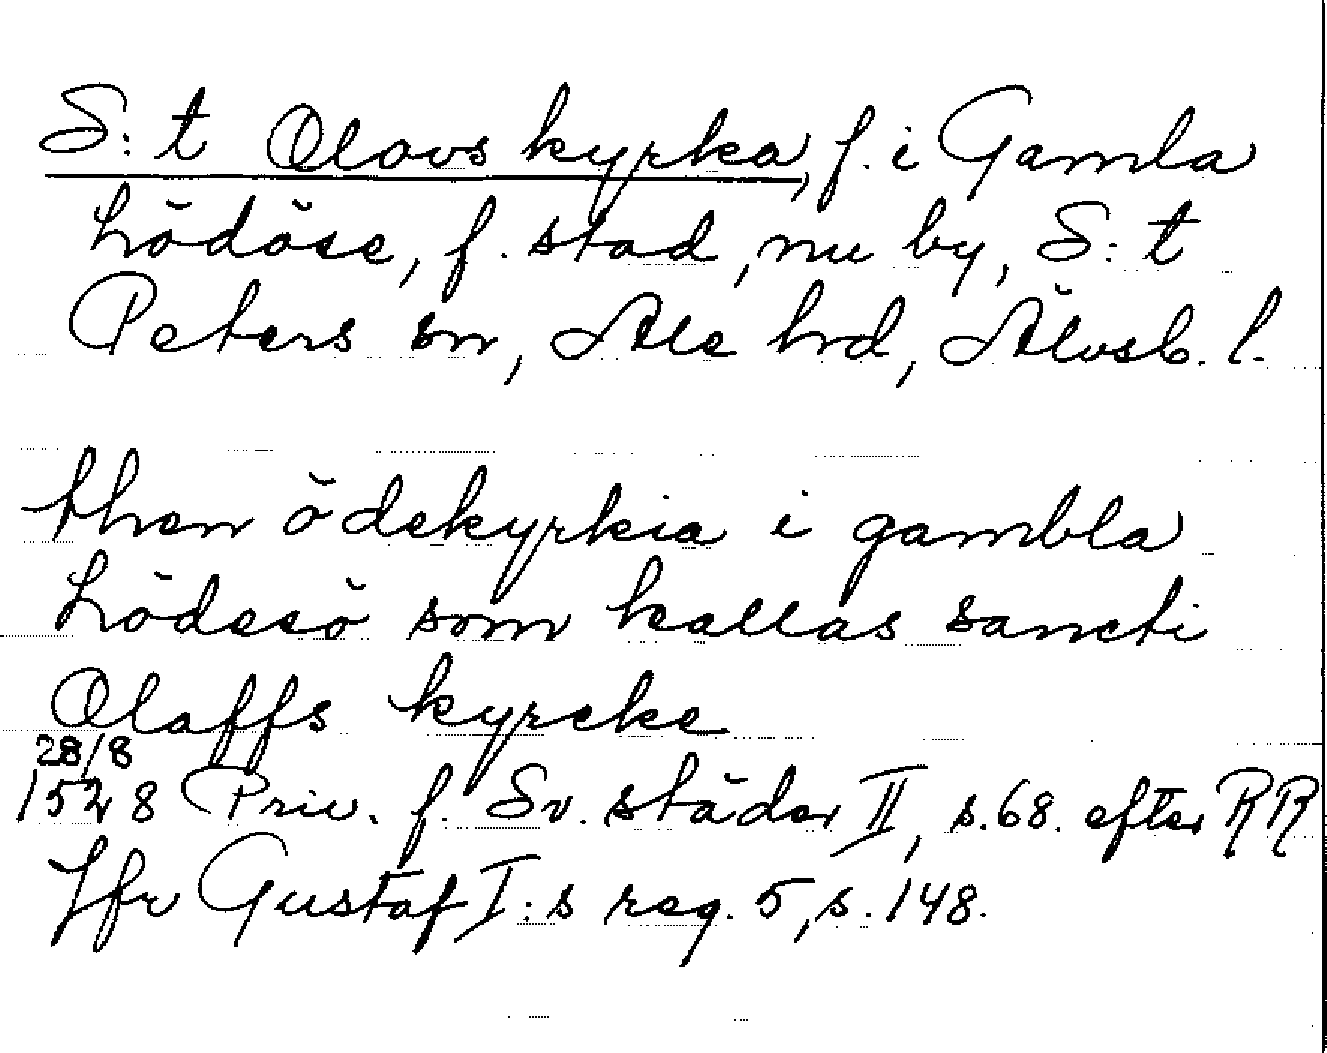 S:t Olovs kyrka, f. i Gamla
Lödöse, f. stad, nu by, S:t
Peters sn, Ale hrd, Älvsb. l.
then ödekyrkia i gambla
Lödesö som kallas sancti
Olaffs kyrcke
28/8
1528 Priv. f. Sv. städer II, s.68. efter RR
Jfr Gustaf I:s reg. 5, s. 148.